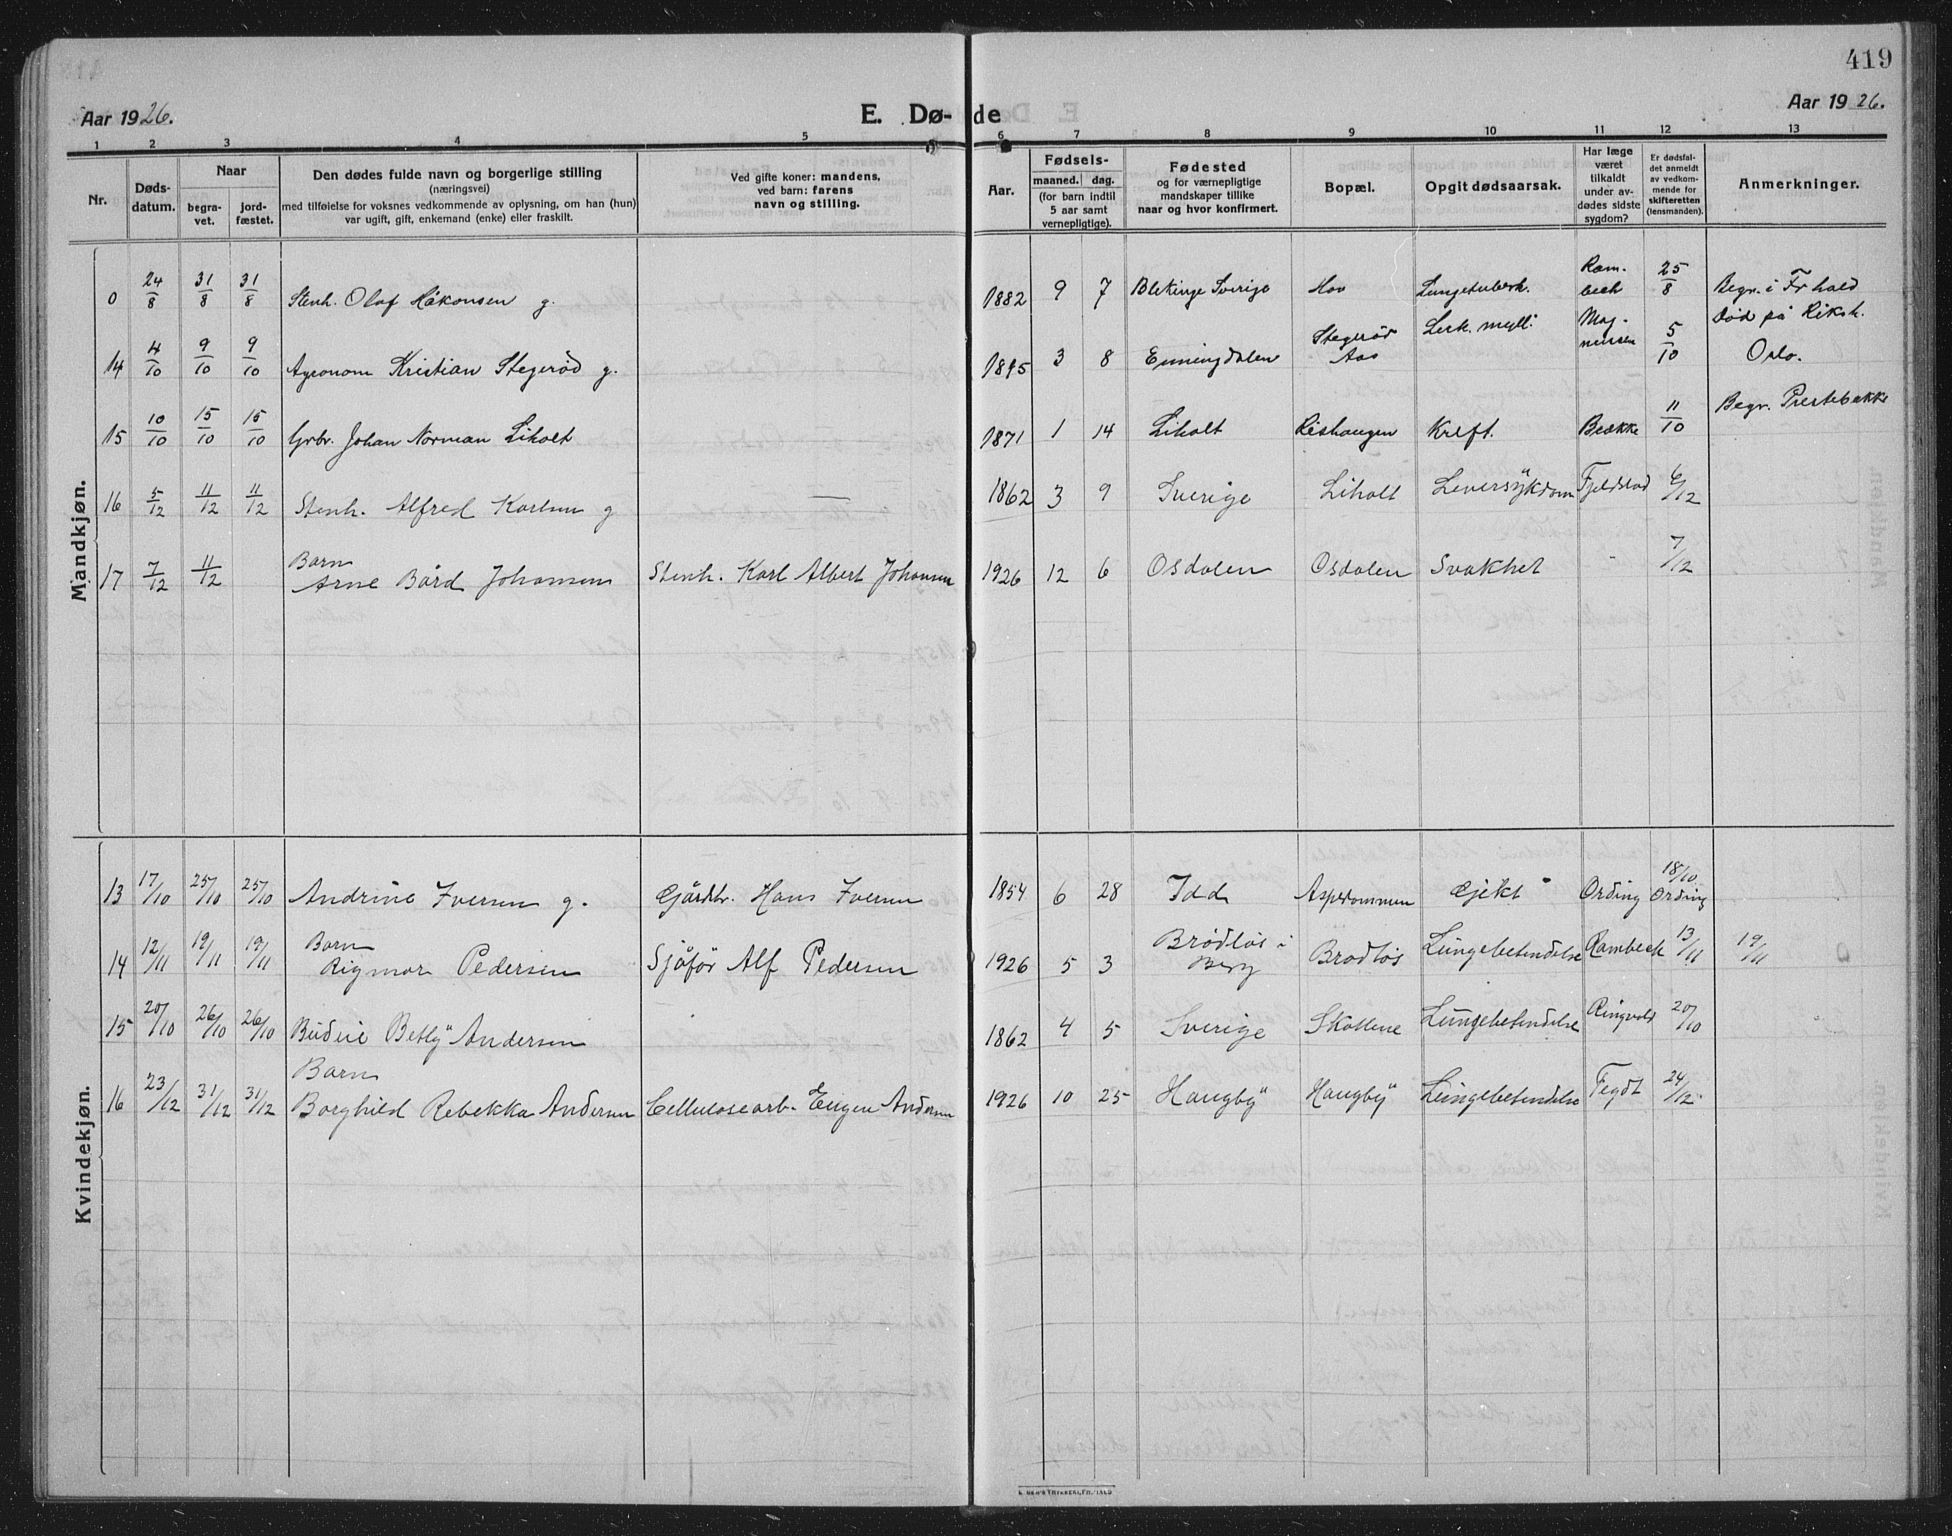 419
Aar 1926.
E. Dø-
de
Aar 1926.
1 2 3 4 5 6 7 8 9 10 11 12 13
Nr.
Døds-
datum.
Naar
begra-
vet.
jord-
fæstet.
Den dødes fulde navn og borgerlige stilling
(næringsvei)
med tilføielse for voksnes vedkommende av oplysning, om han (hun)
var ugift, gift, enkemand (enke) eller fraskilt.
Ved gifte koner: mandens,
ved barn: farens
navn og stilling.
Aar.
Fødsels-
maaned. dag.
(for barn indtil
5 aar samt
vernepligtige).
Fødested
og for værnepligtige
mandskaper tillike
naar og hvor konfirmert.
Bopæl.
Opgit dødsaarsak.
Har læge
været
tilkaldt
under av-
dødes sidste
sygdom?
Er dødsfal-
det anmeldt
av vedkom-
mende for
skifteretten
(lensmanden).
Anmerkninger.
Mandkjøn.
0 24/8 31/8 31/8 Stenh. Olaf Håkonsen g. 1882 9 7 Blekinge Sverige Hov Lungetuberk. Ram-
bech 25/8 Begr. i Fr hald
14 4/10 9/10 9/10 Agronom Kristian Stegerød g. 1895 3 8 Enningdalen Stegerød
Aas Leuk. myll: Mag-
nussen 5/10 Død på Riksh.
Oslo.
15 10/10 15/10 15/10 Grbr. Johan Norman Liholt 1871 1 14 Liholt Rishaugen Kreft. Bække 11/10 Begr. Prestebakke
16 5/12 11/12 11/12 Stenh. Alfred Karlsen g — 1862 3 9 Sverige Liholt Leversykdom Fjeldstad 6/12
17 7/12 11/12 Barn
Arne Bård Johansen Stenh. Karl Albert Johansen 1926 12 6 Osdalen Osdalen Svakhet - 7/12
Kvindekjøn.
13 17/10 25/10 25/10 Andrine Iversen g. Gårdbr. Hans Iversen 1854 6 28 Idd Aspedammen Gjikt Ording 18/10
Ording
14 12/11 19/11 19/11 Barn
Rigmor Pedersen Sjåfør Alf Pedersen 1926 5 3 Brødløs i
Berg Brødløs Lungebetendelse Rambech 13/11 19/11
15 20/10 26/10 26/10 Budeie Betsy Andersen 1862 4 5 Sverige Skottene Lungebetendelse Ringvold 20/10
16 23/12 31/12 31/12 Barn
Borghild Rebekka Andersen Cellulosearb. Eugen Andersen 1926 10 25 Haugby Haugby Lungebetendelse Tegdt 24/12